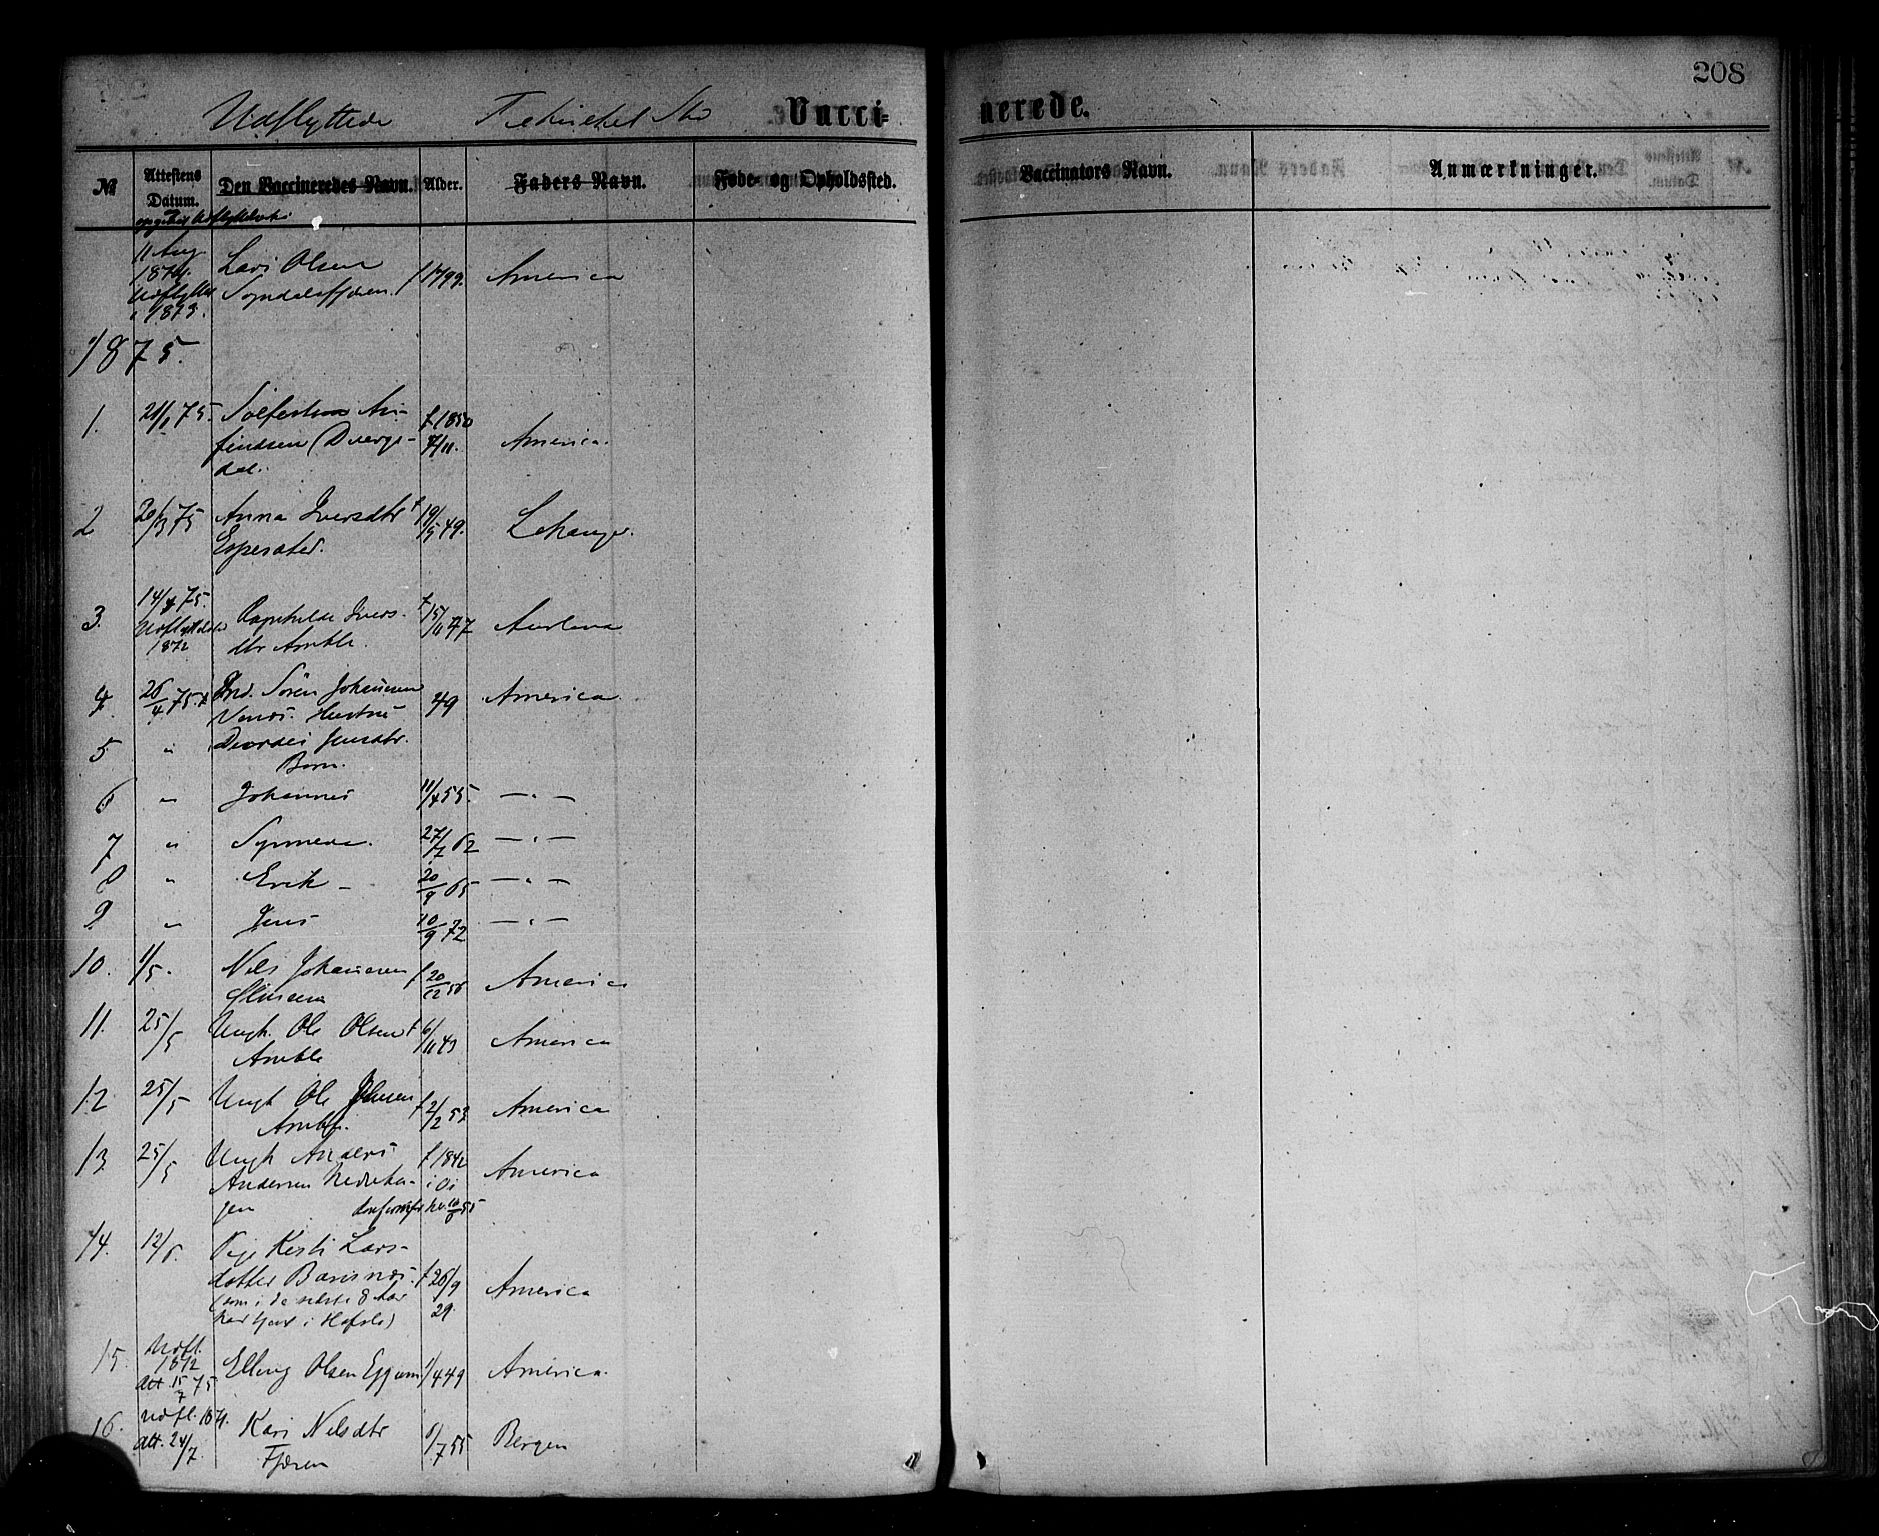 208
Udflyttede Vacci= nerede.
№ Attestens Datum. Den Vaccineredes Navn. Alder. Faders Navn. Føde- og Opholdssted. Vaccinators Navn. Anmærkninger.
11 Aug
1874. Lars Olsen 1799. America
Udflyttet Sogndalsfjæren
i 1873.
1875.
1. 21/1 75. An- f 1850
findsen (Dvergs- 7/11. America.
dal.
2 20/3 75 Anna Iversdtr f 19/5 49. Lekanger.
Esperster.
3. 14/4 75. Ragnhilde Ivers- f 15/11 47 Aurland
1872 dtr Amble.
4. 26/4 75. Søren Johannesen 49 America.
Hustru
5 " Jensdtr.
Børn.
6 " Johannes 11/4 55. — " —
7 " Synneva. 27/7 62 — " —
8 " Erik — 20/9 65 — " —
9 " Jens 10/9 72 — " —
10. 1/5. Nils Johannesen f 20/12 56 America
11. 25/5 Ungk. Ole Olsen f 6/11 43 America
Amble
12. 25/5 Ungk Ole Johnsen f 2/2 53 America
Amble.
13 25/5 Ungk Anders f 1842 America
Andersen Nedreha-
gen
14. 12/6. Pige Kerstі Lars-
datter Barsnæs. f 26/9 America
(som i de sidste 8 Aar 29.
har tjent i Hafslo)
15. Udfl. 1872 Elling Olsen Eggum 1/4 49 America.
Att. 15/7 75
16. Udfl. 1874. Kari Nilsdtr 6/7 55 Bergen
Att. 24/7. Fjæren